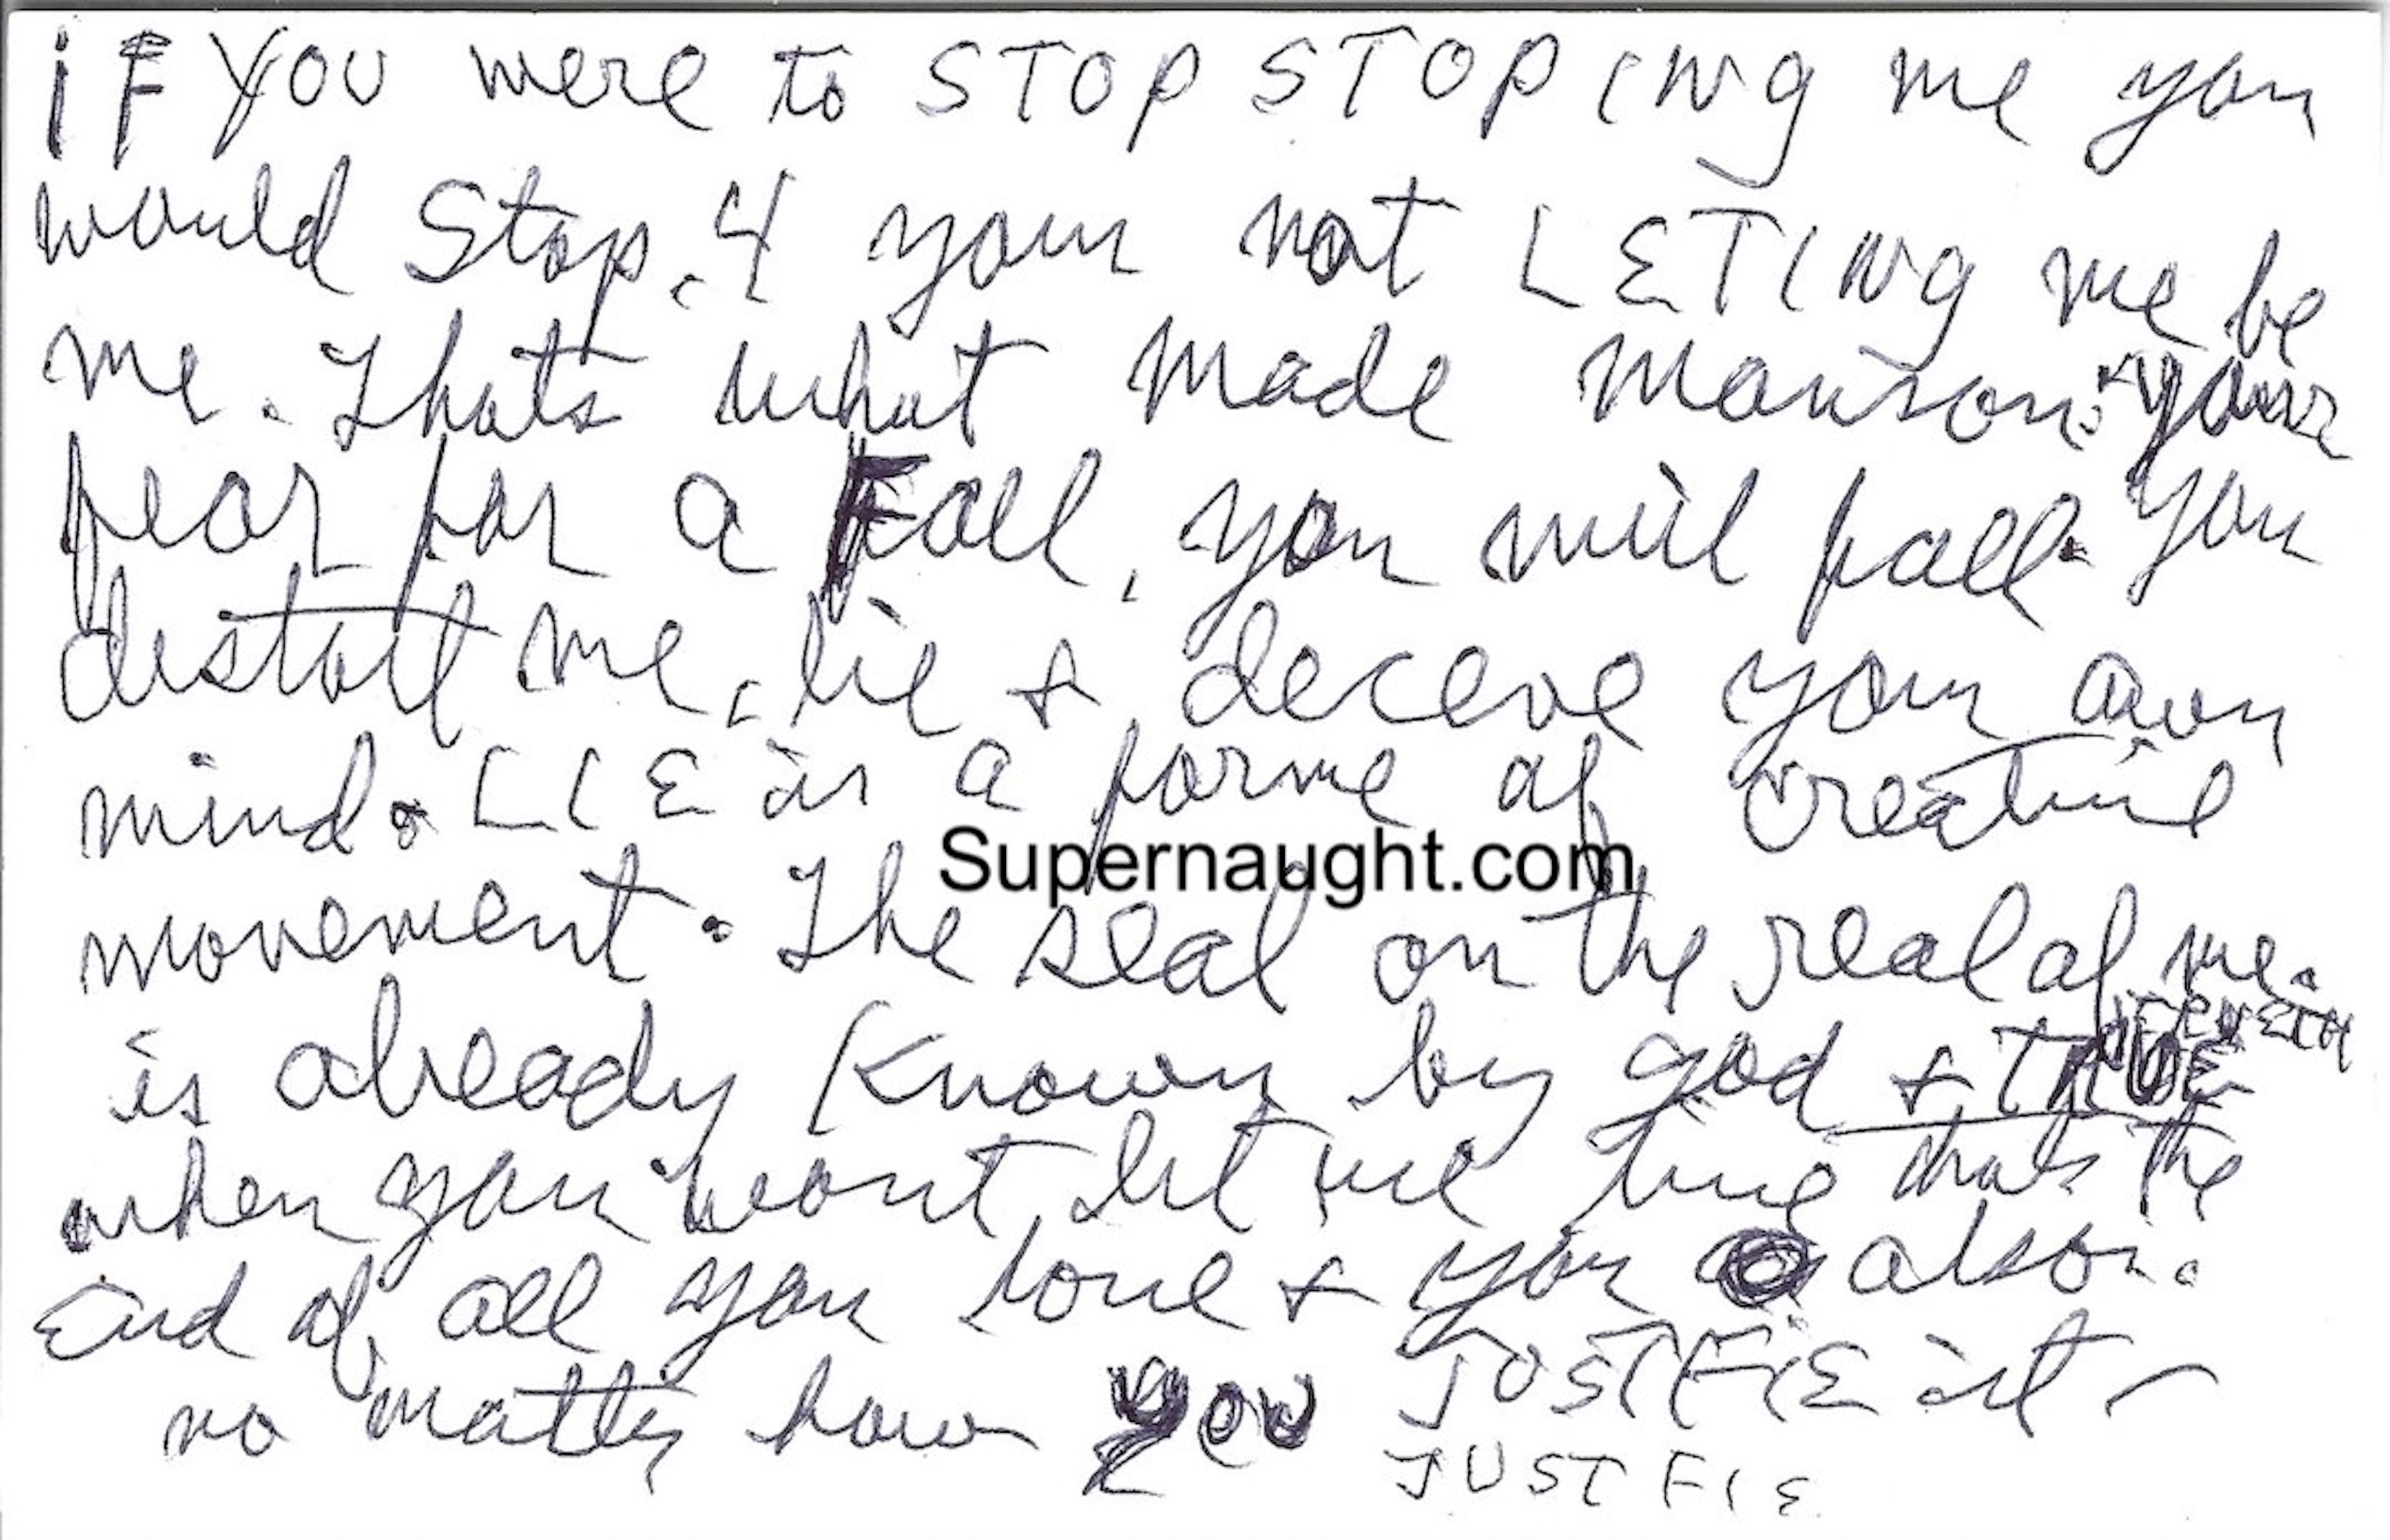 iF YOU were to STOP STOPiNg me you
would Stop. & your not LETiNg me be
me. Thats what made manson. your
fear for a Fall, you will fall. you
distort me, lie & deceve your own
mind. LIE is a forme of creative
Supernaught.com
movement. The seal on the real of me.
is already Known by god &
when you wont let me live thats the
End of all you love & you also.
no matter how you JUSTFIE it
JUSTFIE